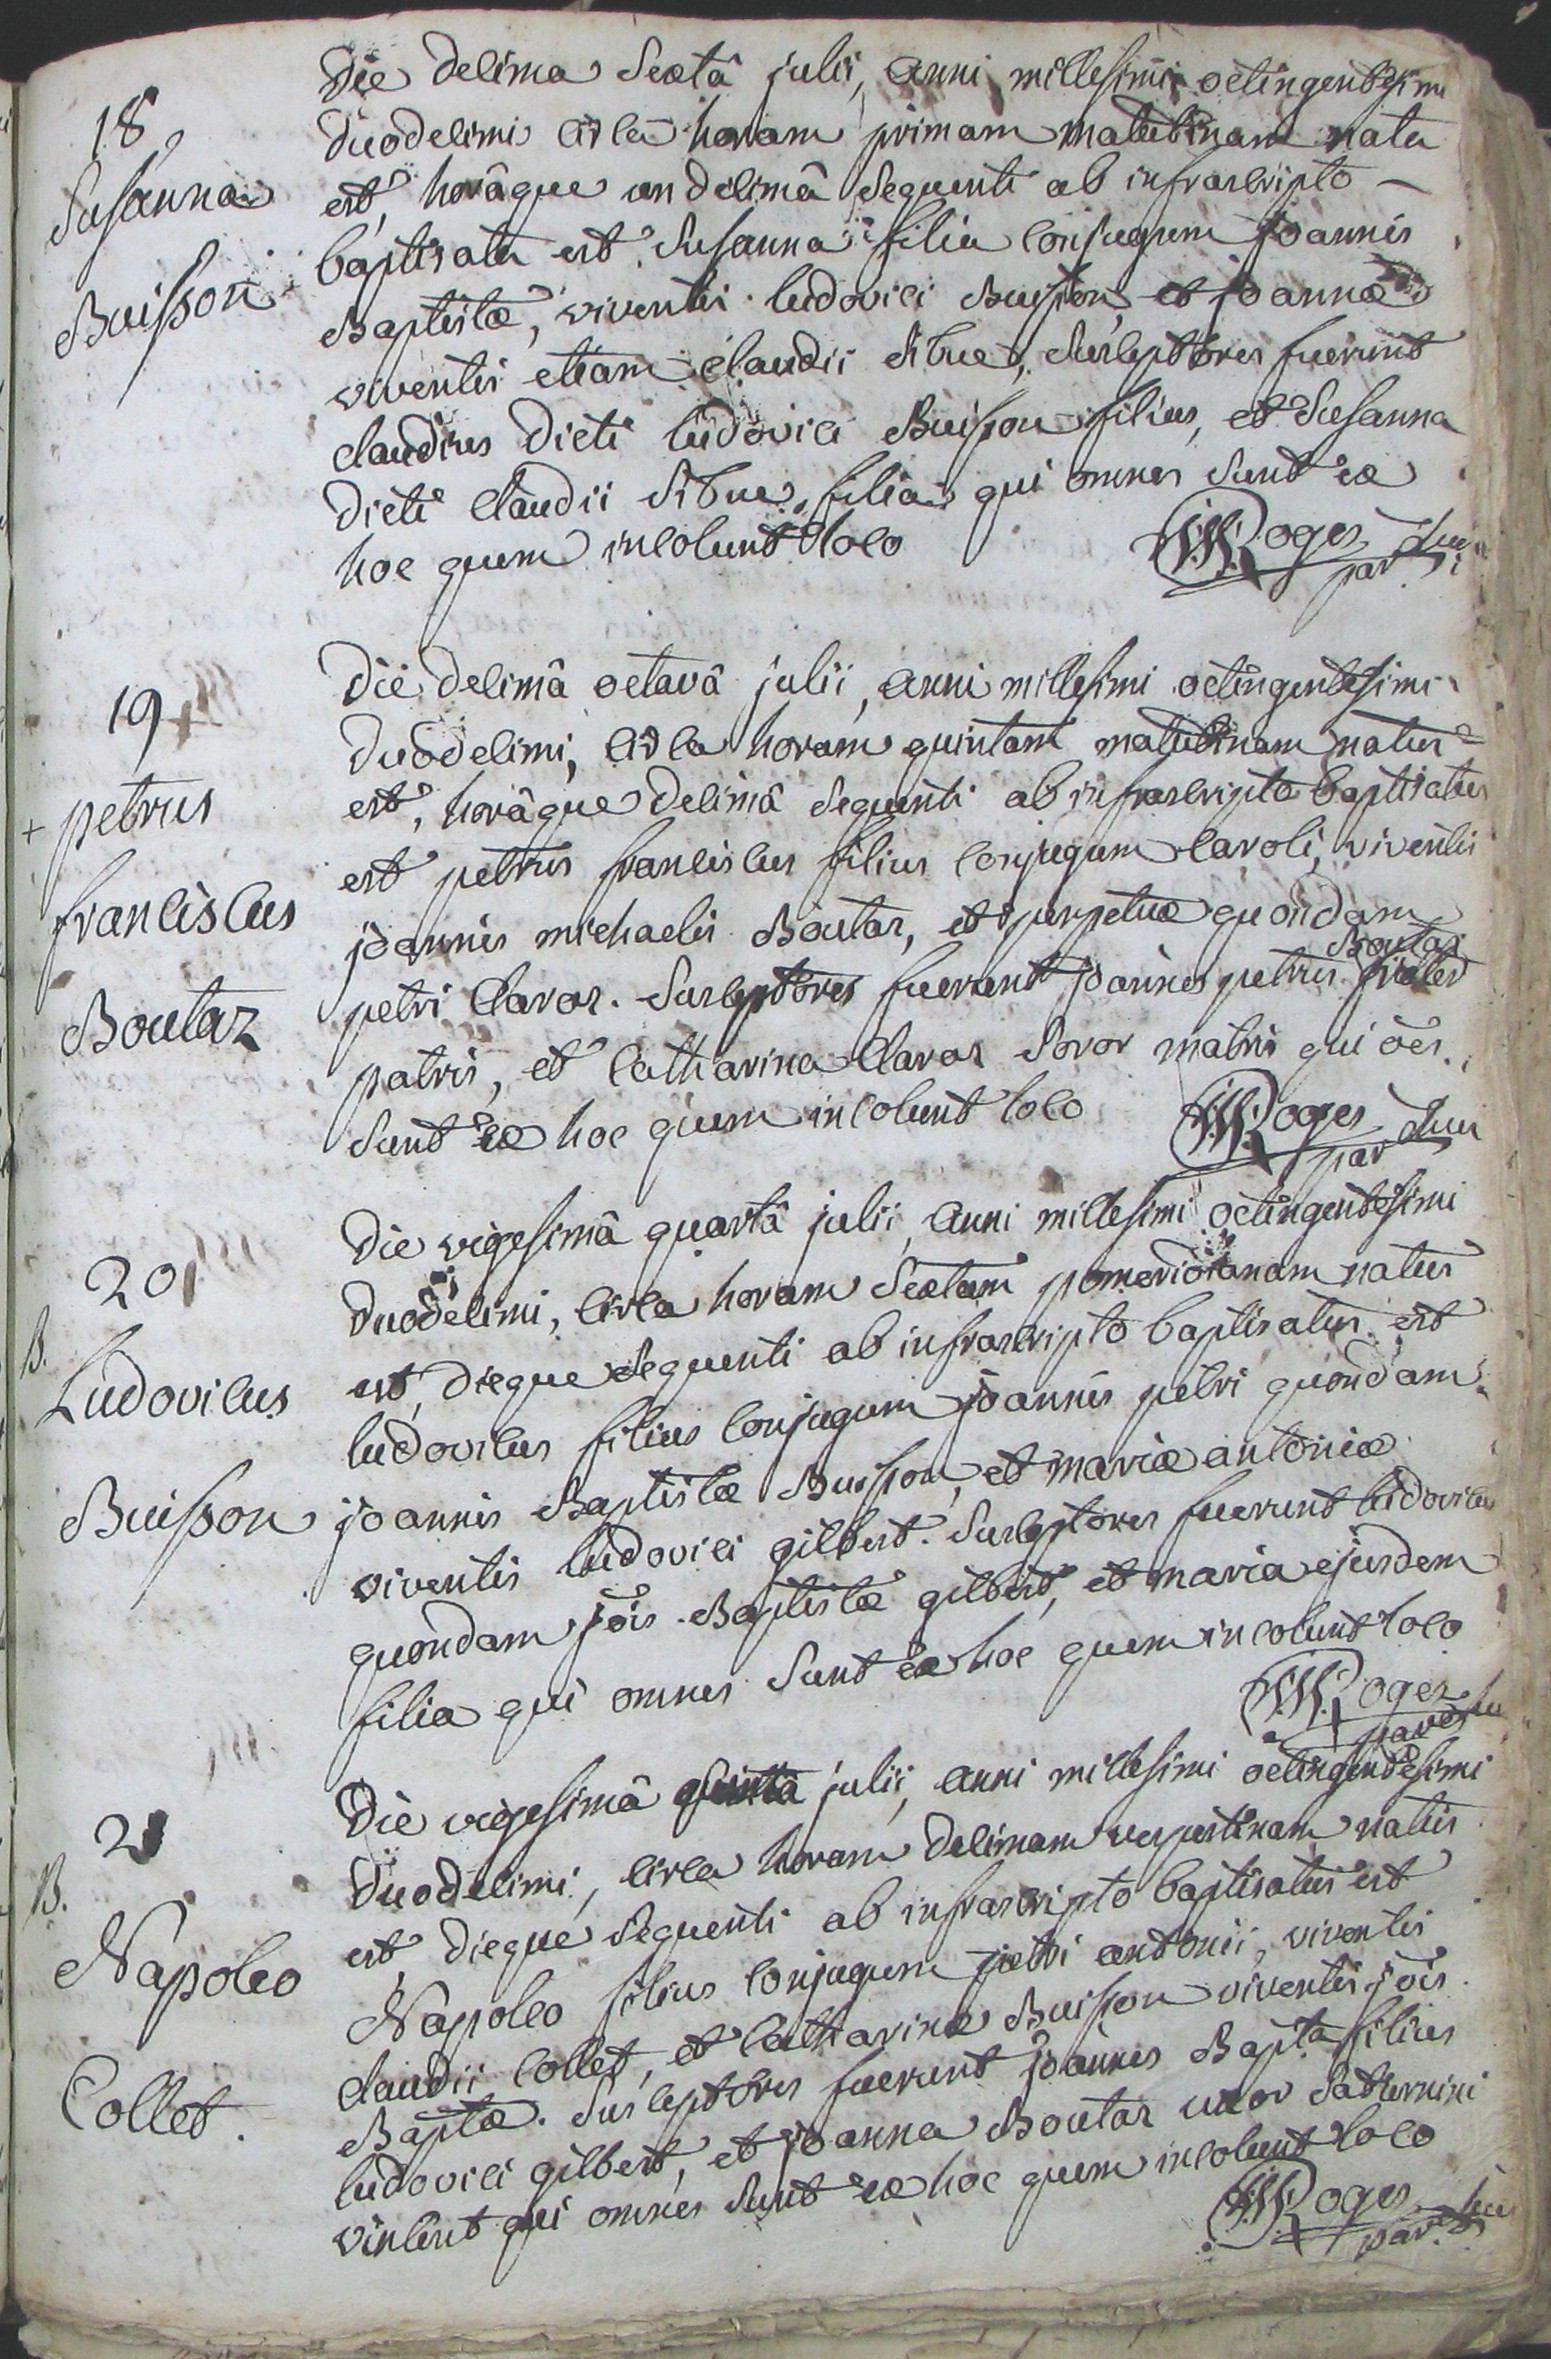 18
Susanna
Buisson
Die decima Sextâ julii, anni millesimi octingentesimi
duodecimi circa horam primam matutinam nata
est, horâque undecimâ Sequenti ab infrascripto -
baptisata est Susanna filia conjugum joannis
Baptistæ, viventis ludovici Buisson, et joannæ
viventis etiam Claudii
Susceptores fuerunt
claudius dicti ludovici Buisson filius, et Susanna
dicti Claudii
filia qui omnes Sunt ex
hoc quem incolunt loco
Roges
par
19
+ petrus
franciscus
Boutaz
Die decimâ octavâ julii, anni millesimi octingentesimi
duodecimi, circa horam quintam matutinam natus
est, horâque decimâ Sequenti ab infrascripto baptisatus
est petrus franciscus filius conjugum caroli, viventis
joannis michaelis Boutaz, et perpetuæ quondam
petri Claraz. Susceptores fuerunt joannes petrus Boutaz frater
patris, et catharina Claraz Soror matris qui oẽs
Sunt ex hoc quem incolunt loco
Roges
par
20
B.
Ludovicus
Buisson
Die vigesimâ quartâ julii, anni millesimi octingentesimi
duodecimi, circa horam Sextam pomeridianam natus
est, dieque Sequenti ab infrascripto baptisatus est
ludovicus filius conjugum joannis petri quondam
joannis Baptistæ Buisson, et mariæ antoniæ
viventis ludovici gilbert. Susceptores fuerunt ludovicus
quondam jõis Baptistæ gilbert, et maria ejusdem
filia qui omnes Sunt ex hoc quem incolunt loco
Roges
par
21
B.
Napoleo
Collet.
Die vigesimâ quintâ julii, anni millesimi octingentesimi
duodecimi, circa horam decimam vespertinam natus
est, dieque Sequenti ab infrascripto baptisatus est
Napoleo filius conjugum petri antonii, viventis
claudii Collet, et catharinæ Buisson viventis jõis
Baptæ. Susceptores fuerunt joannes Bapta filius
ludovici gilbert, et joanna Boutaz uxor Saturnini
vincent qui omnes Sunt ex hoc quem incolunt loco
Roges
par